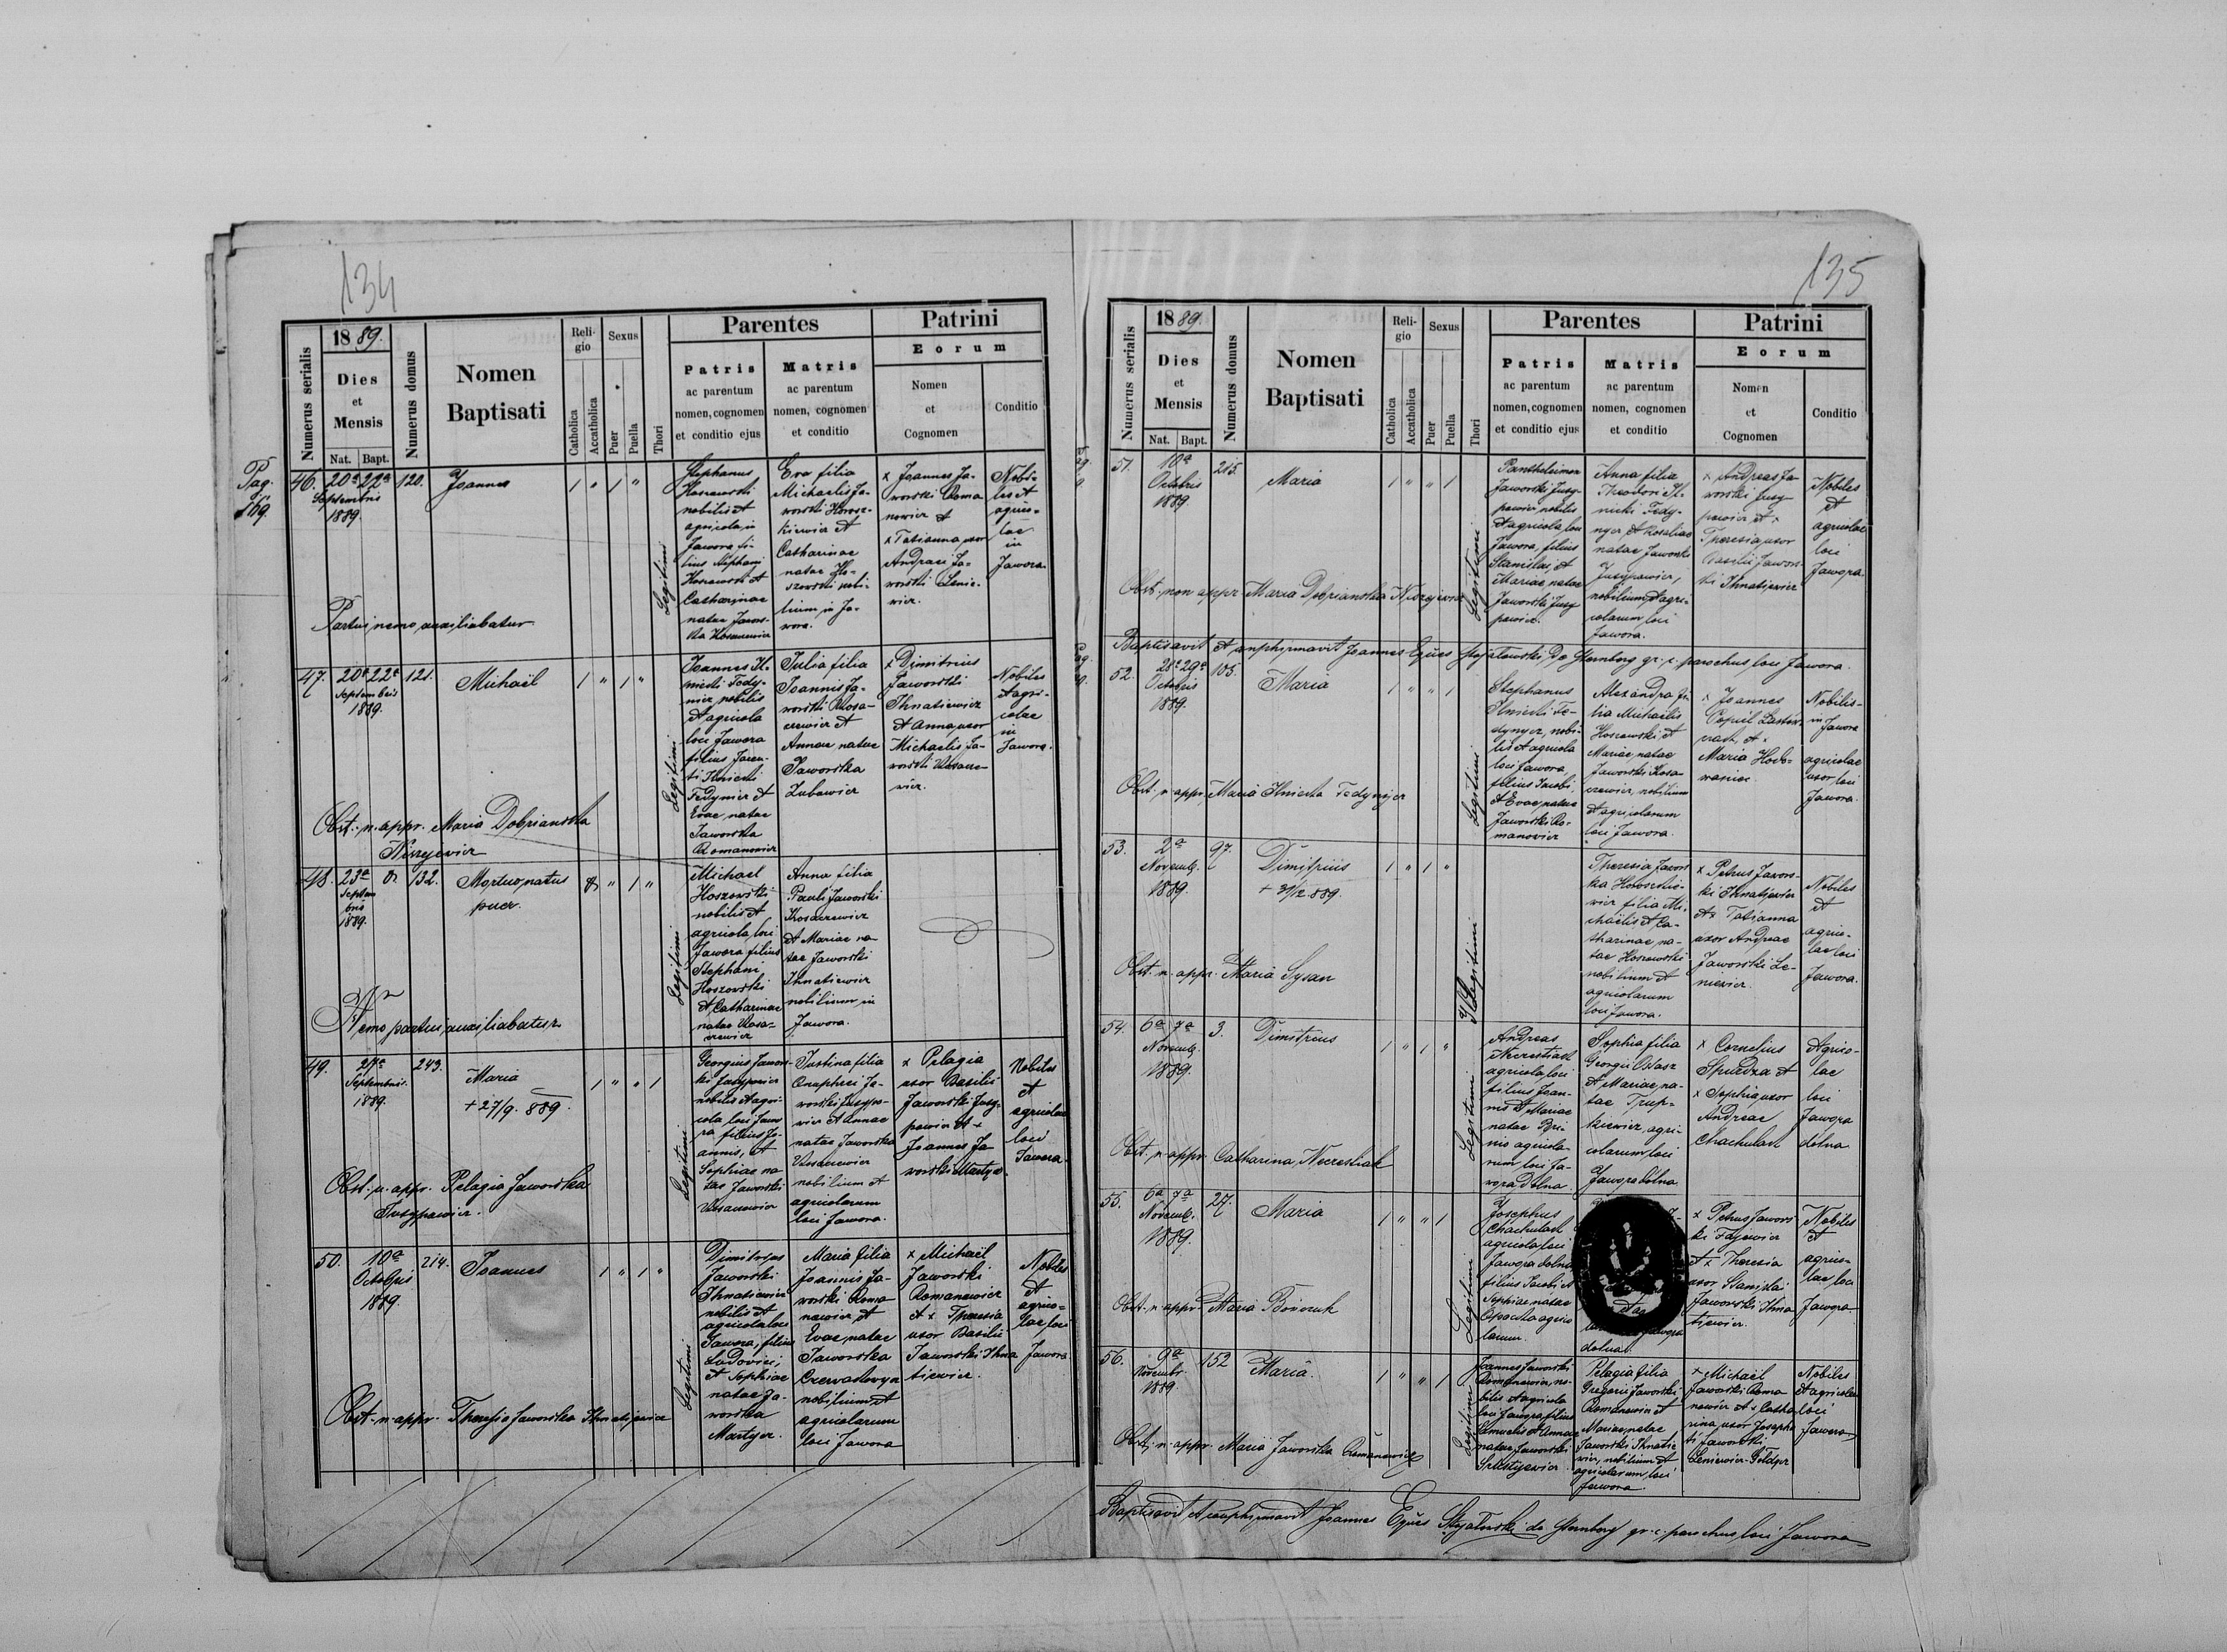 134
1889.
Numerus serialis
Dies
et
Mensis
Nat. Bapt.
Numerus domus
Nomen
Baptisati
Reli-
gio
Catholica
Accatholica
Sexus
Puer
Puella
Thori
Parentes
Patris
ac parentum
nomen, cognomen
et conditio ejus
Matris
ac parentum
nomen, cognomen
et conditio
Patrini
Eorum
Nomen
et
Cognomen
Conditio
Pag.
46.
20ª 22ª
Septembris
1889.
120.
Joannes
Legitimi
Stephanus
Koszowski
nobilis et
agricola in
Jawora fi-
lius Stephani
Catharinae
natae Jawor-
Eva filia
Michaelis Ja-
worski
kiewicz et
Catharinae
natae Ho-
szowski nobi-
lium in Ja-
wora.
x Joannes Ja-
worski Roma
nowicz et
x Tatianna uxor
Andreae Ja-
worski Lenie-
wicz.
Nobi-
les et
agrico-
lae
in
Jawora.
Partui nemo auxiliabatur
47.
20ª 22ª
Septembris
1889.
121.
Michaël
Legitimi
Joannes Il-
nicki Fedy-
nicz, nobilis
et agricola
loci Jawora
filius
Fedynicz et
Evae, natae
Jaworska
Romanowicz
Julia filia
Joannis Ja-
worski Kosa-
czewicz et
Annae natae
Jaworska
Zubowicz
x Dimitrius
Jaworski
Ihnatiewicz
et Anna uxor
Michaelis Ja-
worski
wicz.
Nobiles
et agri-
colae
in
Jawora.
Obst. n. appr. Maria Dobrianska
48.
23ª
Septem
bris
1889.
132.
Mortuo natus
puer.
Legitimi
Michael
Hoszowski
nobilis et
agricola loci
Jawora filius
Stephani
Hoszowski
et Catharinae
natae Kosa-
czewicz
Anna filia
Pauli Jaworski
Kosaczewicz
et Mariae na-
tae Jaworski
Ihnatiewicz
nobilium in
Jawora.
Nemo partui auxiliabatur
49.
27ª
Septembris.
1889.
243.
Maria
+ 27/9. 889.
Legitimi
Georgius Jawor-
ski Jusypowicz
nobilis et agri-
cola loci Jawo
ra filius Jo-
annis, et
Sophiae na
tae Jaworski
Justina filia
Onuphrii Ja-
worski Jusypo-
wicz et Annae
natae Jaworska
nobilium et
agricolarum
loci Jawora.
x Pelagia
uxor Basilii
Jaworski Jusy-
powicz et x
Joannes Ja-
worski Martycz
Nobiles
et
agricolae
loci
Jawora
Obst. n. appr. Pelagia Jaworska
Jusypowicz.
50.
10ª
Octobris
1889.
214.
Joannes
Legitimi
Dimitrius
Jaworski
Ihnatiewicz
nobilis et
agricola loci
Jawora, filius
Ludovici,
et Sophiae
natae Ja-
worska
Martycz.
Maria filia
Joannis Ja-
worski Roma
nowicz et
Evae, natae
Jaworska
nobilium et
agricolarum
loci Jawora
x Michaël
Jaworski
Romanowicz
et x Theresia
uxor Basilii
Jaworski Ihna
tiewicz.
Nobiles
et
agrico-
lae, loci
Jawora
Obst. n. appr. Theresia Jaworska Ihnatiewicz
135
1889.
Numerus serialis
Dies
et
Mensis
Nat. Bapt.
Numerus domus
Nomen
Baptisati
Reli-
gio
Catholica
Accatholica
Sexus
Puer
Puella
Thori
Parentes
Patris
ac parentum
nomen, cognomen
et conditio ejus
Matris
ac parentum
nomen, cognomen
et conditio
Patrini
Eorum
Nomen
et
Cognomen
Conditio
51.
10ª
Octobris
1889.
215.
Maria
Legitimi
Pantheleimon
Jaworski Jusy-
powicz nobilis
et agricola loci
Jawora, filius
Stanislai, et
Mariae, natae
Jaworski Jusy
powicz.
Anna filia
Theodori Il-
nicki Fedy-
nycz et Rosaliae
natae Jaworski
Jusypowicz,
nobilium et agri-
colarum loci
Jawora.
x Andreas Ja-
worski Jusy-
powicz, et x
Theresia uxor
Basilii Jawor-
ski Ihnatiewicz
Nobiles
et
agricolae
loci
Jawora.
Obst. non appr. Maria Dobrianska
Baptisavit et confirmavit Joannes Eques de Sternberg gr. c. parochus loci Jawora.
52.
28ª 29ª
Octobris
1889.
105.
Maria
Legitimi
Stephanus
Ilnicki Fe-
dynycz, nobi-
lis et agricola
loci Jawora,
filius Jacobi,
et Evae, natae
Jaworski Ro-
manowicz
Alexandra fi-
lia Michaelis
Hoszowski et
Mariae, natae
Jaworski Kosa-
czewicz, nobilium
et agricolarum
loci Jawora.
x Joannes
et x
Maria
Nobilis
in Jawora
agricolae
uxor loci
Jawora.
Obst. n. appr. Maria Ilnicka Fedynycz
53.
2ª
Novemb.
1889.
97.
Dimitrius
+ 31/12 889.
Illegitimi
Theresia Jawor
ska
wicz filia Mi-
chaëlis et Ca-
tharinae, na-
tae Hoszowski
nobilium et
agricolarum
loci Jawora.
x Petrus Jawors-
ki Ihnatiewicz
et x Tatianna
uxor Andreae
Jaworski Le-
niewicz.
Nobiles
et
agrico-
lae loci
Jawora.
Obst. n. appr. Maria Sysan
54.
6ª 7ª
Novemb.
1889.
3.
Dimitrius
Legitimi
Andreas
Neczestiak
agricola, loci
filius Joan-
nis et Mariae
natae
agricola-
rum, loci Ja-
wora dolna.
Sophia filia
Georgii
et Mariae, na-
tae
kiewicz, agri-
colarum loci
Jawora dolna.
x Cornelius
et
x Sophia uxor
Andreae
Chachulak
Agrico-
lae
loci
Jawora
dolna
Obst. n. appr. Catharina Neczestiak
55.
6ª 7ª
Novemb.
1889.
27.
Maria
Legitimi
Josephus
Chachulak
agricola, loci
Jawora dolna
filius Jacobi et
Sophiae, natae
agrico
larum.
dolna.
x Petrus Jawors
ki
et x Theresia
uxor Stanislai
Jaworski Ihna
tiewicz.
Nobiles
et
agrico-
lae, loci
Jawora
Obst. n. appr. Maria
56.
9ª
Novembr.
1889.
152
Maria.
Legitimi
Joannes Jaworski
Romanowicz, no-
bilis et agricola
loci Jawora filius
Samuelis et Annae
natae Jaworski
Pelagia filia
Gregorii Jaworski
Romanowicz et
Mariae, natae
Jaworski Ihnatie
wicz, nobilium et
agricolarum, loci
Jawora.
x Michaël
Jaworski Roma
nowicz et x Catha
rina uxor Josepha
ti Jaworski
Leniewicz
Nobiles
et agricolae
loci
Jawora
Obst. n. appr. Maria Jaworska Romanowicz
Baptisavit et confirmavit Joannes Eques de Sternberg gr. c. parochus, loci Jawora